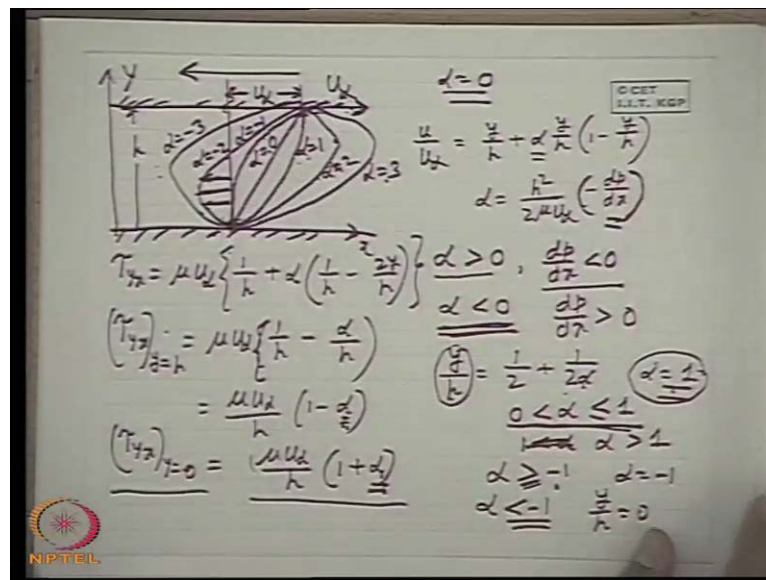 y
U∞
U∞
h
x
α=-3
α=-2
α=-1
α=0
α=1
α=2
α=3
α=0
© CET
I.I.T. KGP
u/U∞ = y/h + α y/h (1 - y/h)
α = h²/2μU∞ (-dp/dx)
τyx = μU∞ {1/h + α(1/h - 2y/h)}
α > 0, dp/dx < 0
α < 0 dp/dx > 0
(τyx)y=h = μU∞ {1/h - α/h)
y/h = 1/2 + 1/2α α=1
= μU∞/h (1-α)
0 < α ≤ 1
α > 1
(τyx)y=0 = μU∞/h (1+α)
α ≥ -1 α=-1
α < -1 y/h = 0
NPTEL